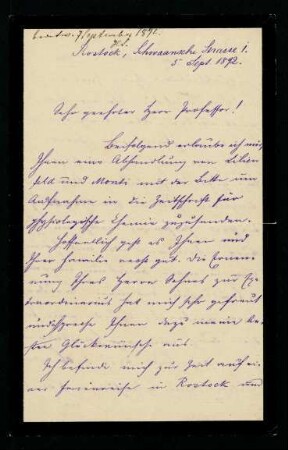 beantw. 7 September 1892.
Rostock, Schwaansche Strasse 1.
5 Sept. 1892.
Sehr geehrter Herr Professor!
Beifolgend erlaube ich mir,
Ihnen eine Abhandlung von Lilien
feld und Monti mit der Bitte um
Aufnahme in die Zeitschrift für
physiologische Chemie zuzusenden.
Hoffentlich geht es Ihnen und
Ihrer Familie recht gut. Die Ernen
nung Ihres Herrn Sohnes zum Ex
traordinarius hat mich sehr gefreut
und spreche Ihnen dazu meine be
sten Glückwünsche aus.
Ich befinde mich zur Zeit auf ei
ner Ferienreise in Rostock und